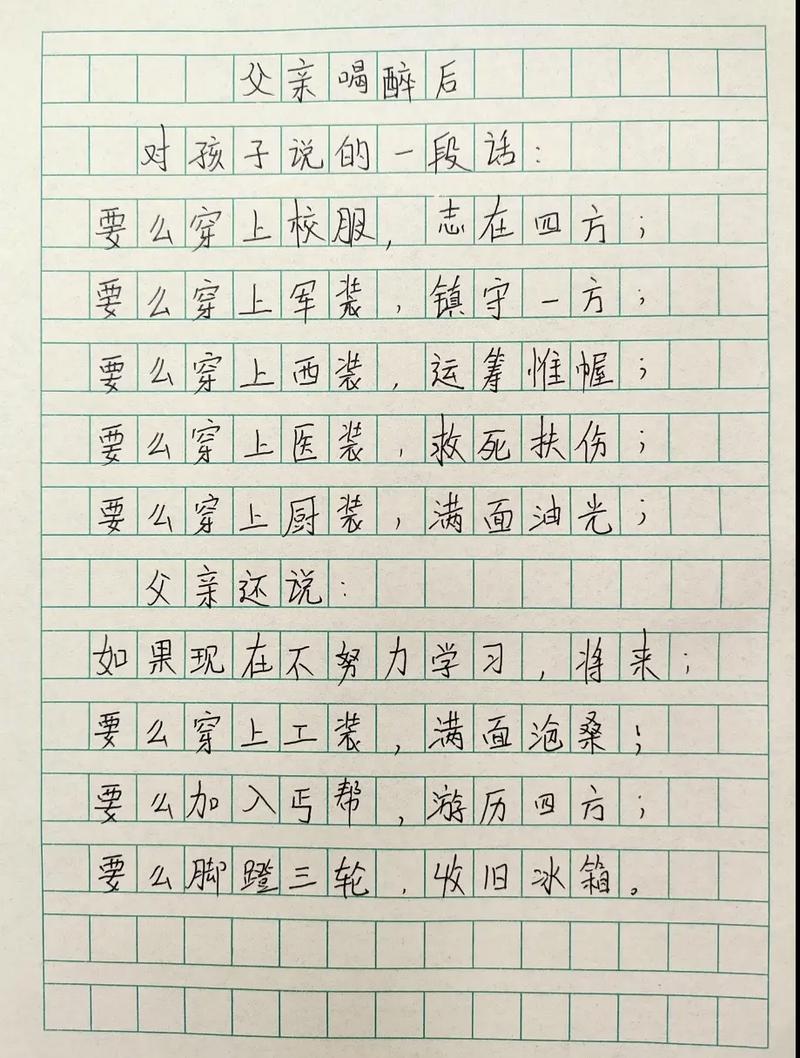 父亲喝醉后
对孩子说的一段话：
要么穿上校服，志在四方；
要么穿上军装，镇守一方；
要么穿上西装，运筹帷幄；
要么穿上医装，救死扶伤；
要么穿上厨装，满面油光；
父亲还说：
如果现在不努力学习，将来；
要么穿上工装，满面沧桑；
要么加入丐帮，游历四方；
要么脚蹬三轮，收旧冰箱。